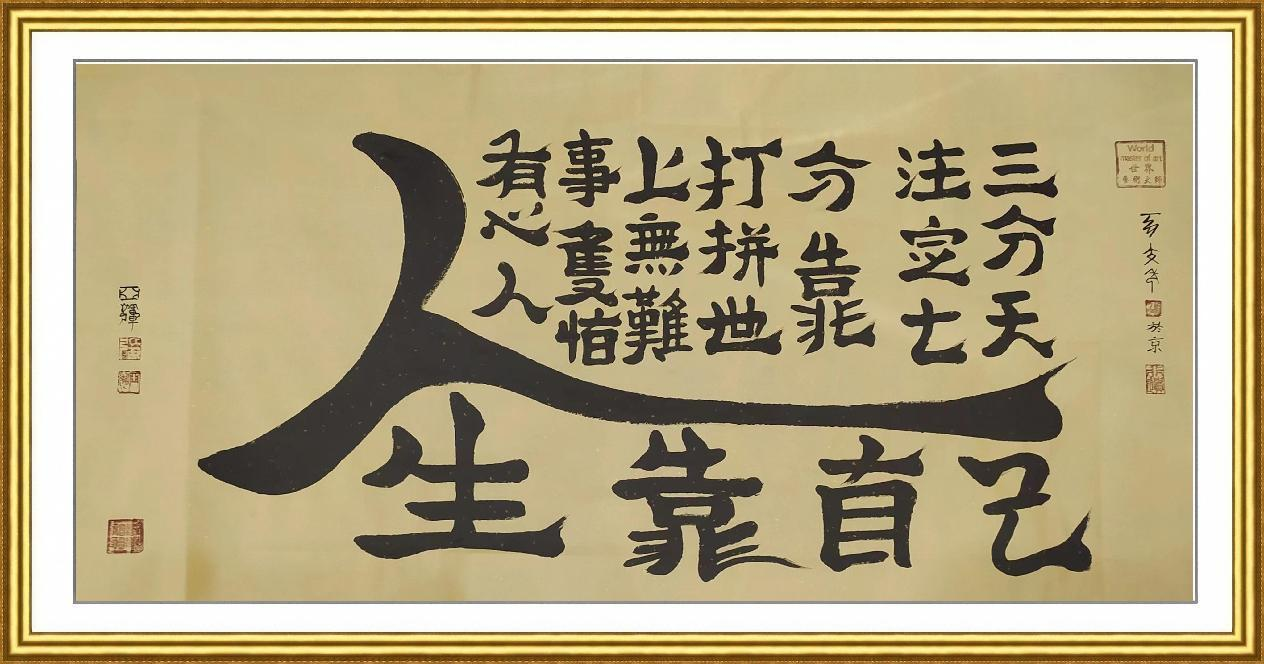 World
master of art
世界
於京
三分天
注定七
分靠
打拼世
上無難
事隻怕
有心人
人生靠自己
亞輝